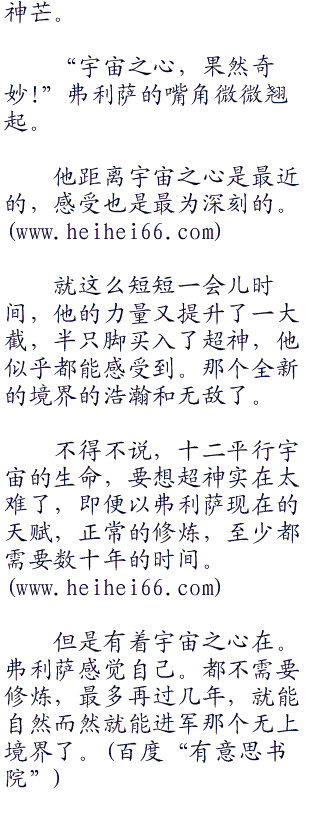 神芒。
“宇宙之心，果然奇
妙!”弗利萨的嘴角微微翘
起。
他距离宇宙之心是最近
的，感受也是最为深刻的。
(www.heihei66.com)
就这么短短一会儿时
间，他的力量又提升了一大
截，半只脚买入了超神，他
似乎都能感受到。那个全新
的境界的浩瀚和无敌了。
不得不说，十二平行宇
宙的生命，要想超神实在太
难了，即便以弗利萨现在的
天赋，正常的修炼，至少都
需要数十年的时间。
(www.heihei66.com)
但是有着宇宙之心在。
弗利萨感觉自己。都不需要
修炼，最多再过几年，就能
自然而然就能进军那个无上
境界了。(百度“有意思书
院”)